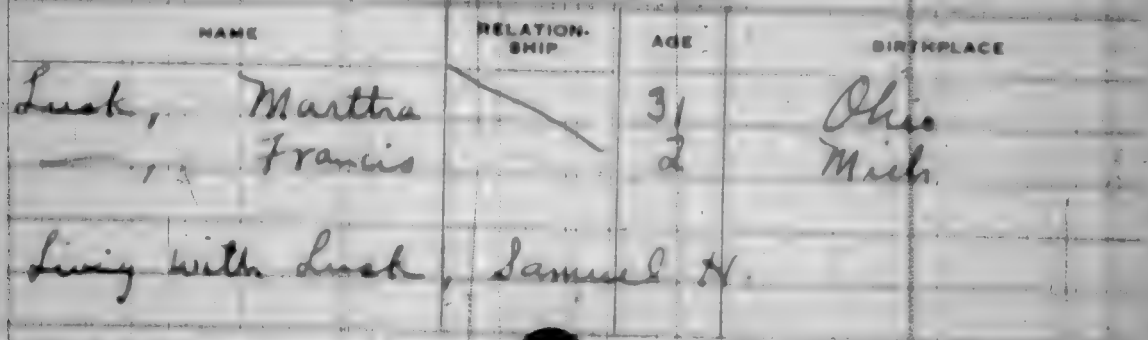 NAME RELATION-SHIP AGE BIRTHPLACE
Lusk, Marttra 31 Ohio
— , Francis 2 Mich
Livig with Lusk, Samuel H.